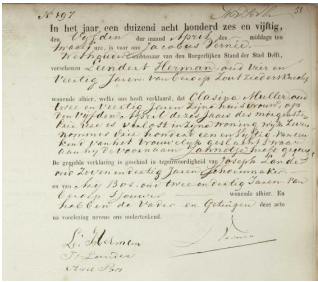 No 497
51
In het jaar, een duizend acht honderd zes en vijftig,
den vijfden der maand April des middags ten
ure, is voor ons Jacobus Pernée
Wethouder Ambtenaar van den Burgerlijken Stand der Stad Delft,
verschenen Leendert Herman oud vier en
Veertig Jaren van beroep Zoutzieders knecht
wonende alhier, welke ons heeft verklaard, dat Clasina Muller oud
twee en veertig Jaren zijne huisvrouw, op
den vijfden April dezes Jaars des morgens te
drie ure is verlost in zijne woning wijk zeven
nommer vier honderd en van een
kind van het vrouwelijk geslacht, waar
aan hij de voornaam Jannetje heeft gegeven
De gegevene verklaring is geschied in tegenwoordigheid van Joseph Lander
oud zeven en veertig Jaren Schoenmaker
en van Arij Bos oud twee en veertig Jaren van
beroep Sjouwer wonende alhier. En
hebben de Vader en Getuigen deze acte
na voorlezing nevens ons onderteekend.
L. Herman
J. Lander
Arij Bos